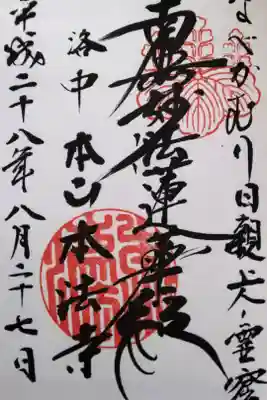 なべかむり日親大人霊窟
南無妙法蓮華経
洛中 本山 本法寺
平成二十八年八月二十七日